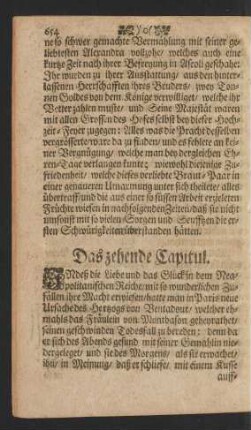 654
neso schwer gemachte Vermählung mit seiner ge-
liebtesten Alexandra vollzohe/ welches auch eine
kurtze Zeit nach ihrer Befreyung in Ascoli geschahe:
Ihr wurden zu ihrer Ausstattung/ aus den hinter-
lassenen Herrschafften ihres Bruders/ zwey Ton-
nen Goldes von dem Könige verwilliget/ welche ihr
Vetter zahlen muste/ und Seine Majestät waren
mit allen Grossen des Hofes selbst bey dieser Hoch-
zeit-Feyer zugegen: Alles was die Pracht desselben
vergrösserte/ ware da zu finden/ und es fehlete an kei-
ner Vergnügung/ welche man bey dergleichen Eh-
ren-Tage verlangen kunte; wiewohl diejenige Zu-
friedenheit/ welche dieses verliebte Braut-Paar in
einer genaueren Umarmung unter sich theilete/ alles
übertraff/ und die aus einer so süssen Arbeit erzieleten
Früchte wiesen in nachfolgenden Zeiten/ daß sie nicht
umsonst mit so vielen Sorgen und Seufftzen die er-
sten Schwürigkeiten überstanden hätten.
Das zehende Capitul.
INdeß die Liebe und das Glück in dem Nea-
politanischen Reiche/ mit so wunderlichen Zu-
fällen ihre Macht erwiesen/ hatte man in Paris neue
Ursache des Hertzogs von Ventadour/ welcher eh-
mahls das Fräulein von Montbason geheyrathet/
seinen geschwinden Todesfall zu bereden: denn da
er sich des Abends gesund mit seiner Gemahlin nie-
dergeleget/ und sie des Morgens/ als sie erwachet/
ihn/ in Meinung/ daß er schlieffe/ mit einem Kusse
auff-